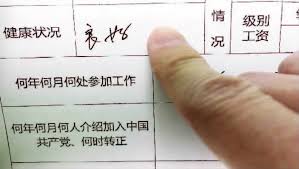 健康状况 良好 情况 级别工资
何年何月何处参加工作
何年何月何人介绍加入中国
共产党、何时转正